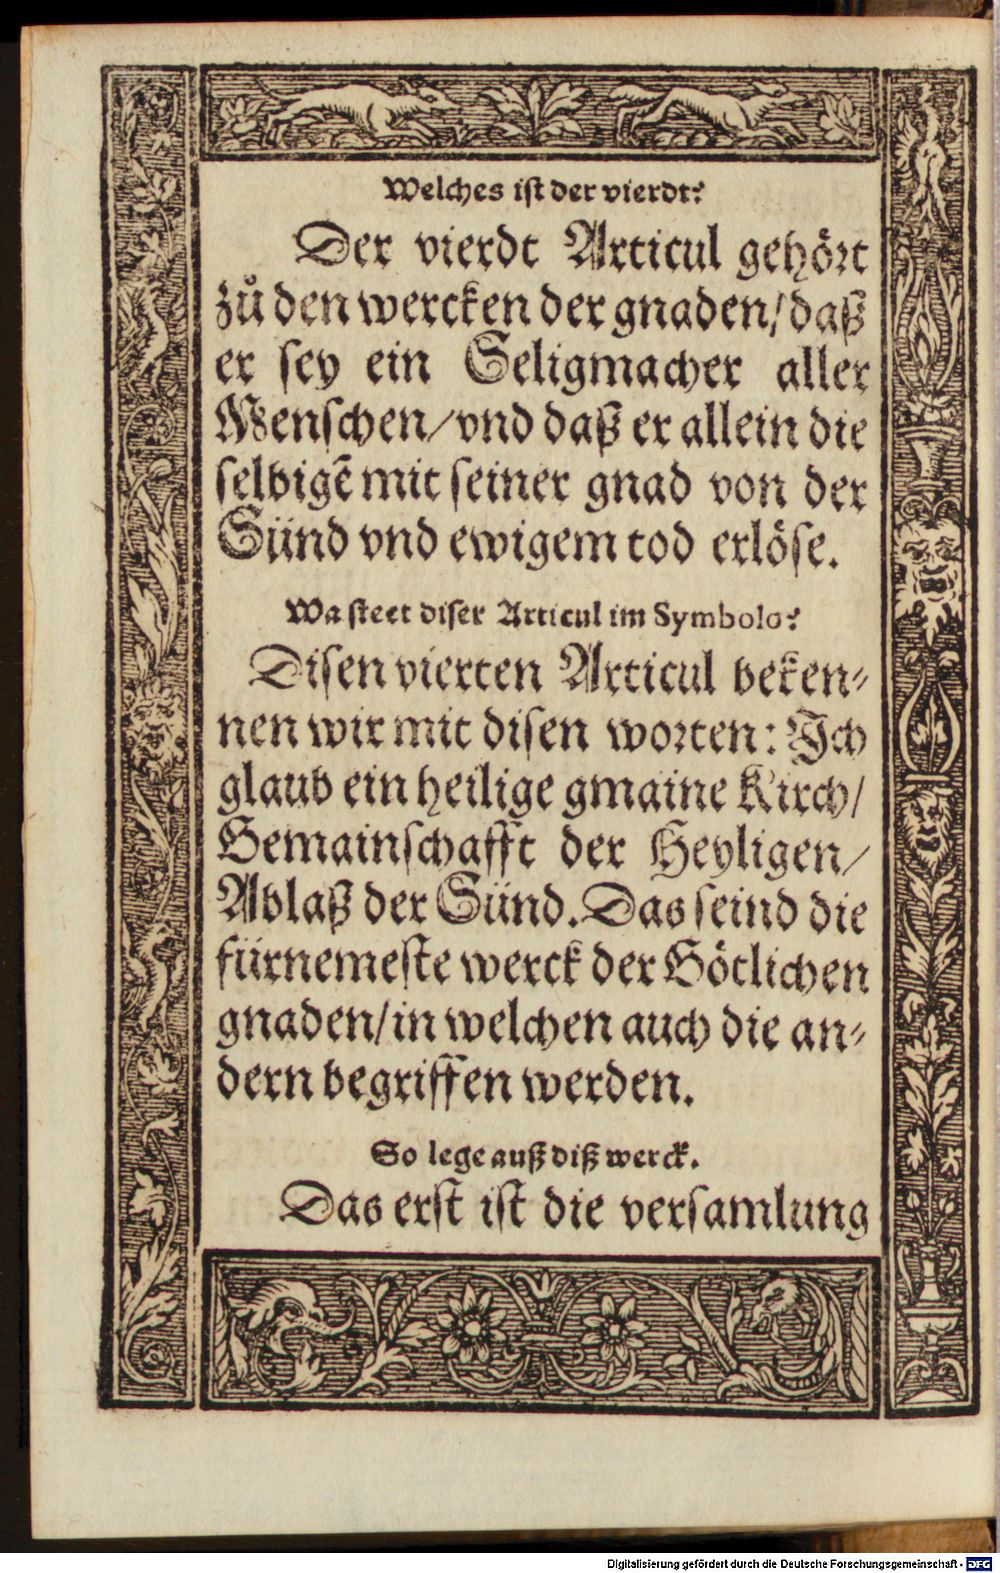 Welches ist der vierdt?
Der vierdt Articul gehört
zů den wercken der gnaden/ daß
er sey ein Seligmacher aller
Menschen/ vnd daß er allein die
selbigẽ mit seiner gnad von der
Sünd vnd ewigem tod erlöse.
Wa steet diser Articul im Symbolo?
Disen vierten Articul beken-
nen wir mit disen worten: Ich
glaub ein heilige gmaine Kirch/
Gemainschafft der Heyligen/
Ablaß der Sünd. Das seind die
fürnemeste werck der Götlichen
gnaden/ in welchen auch die an-
dern begriffen werden.
So lege auß diß werck.
Das erst ist die versamlung
Digitalisierung gefördert durch die Deutsche Forschungsgemeinschaft - DFG